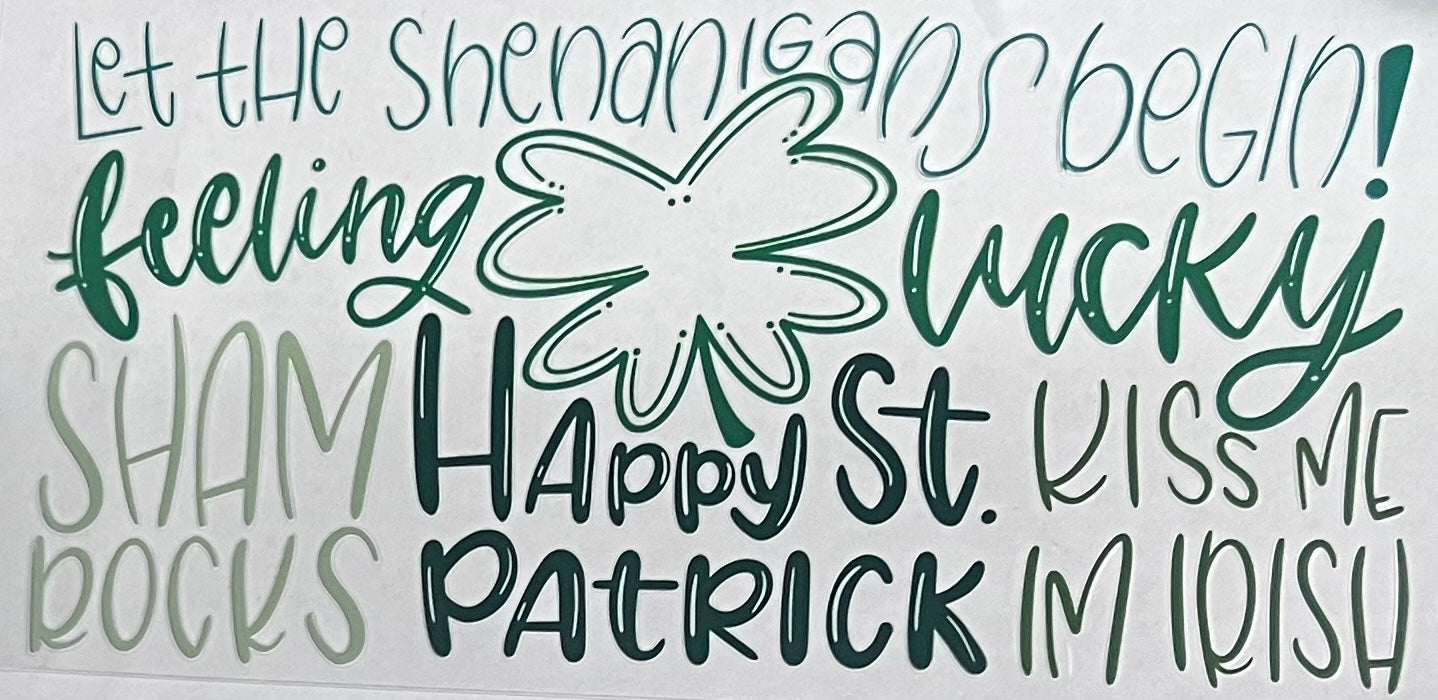 Let the shenanigans begin!
feeling lucky
SHAM
ROCKS
Happy St.
PATRICK
KISS ME
IM IRISH